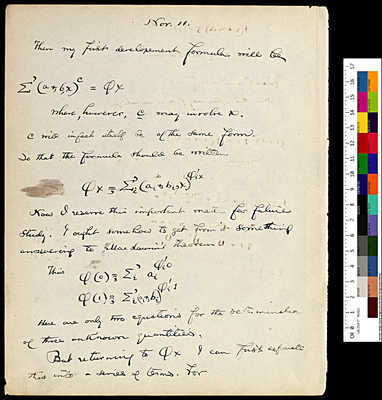 Nov. 11.
Then my first developement formula will be
Σ'(a+bx)^c = φx
where, however, c may involve x.
c will in fact itself be of the same form.
So that the formula should be written
φx = Σ'(a+bx)^φ'x
Now I reserve this important matter for future
study. I ought somehow to get from it something
answering to Maclaurin's theorem
Thus φ(0) = Σ' a^φ'0
φ(1) = Σ'(a+b)^φ'1
Here are only two equations for the determination
of three unknown quantities.
But returning to φx I can first separate
this into a series of terms. For